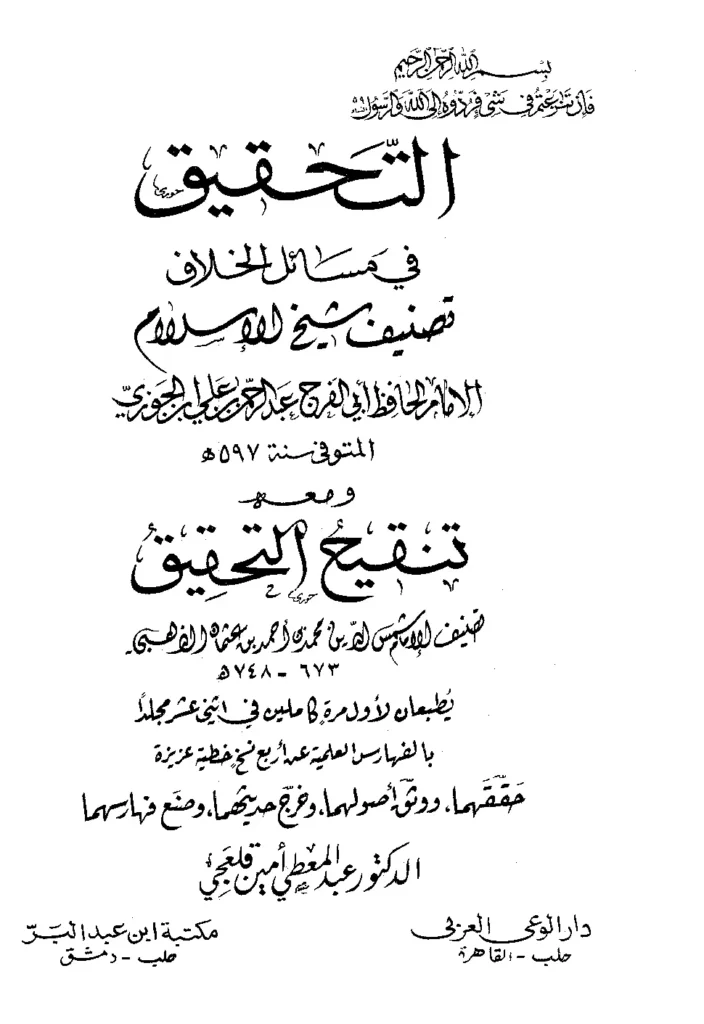 بسم الله الرحمن الرحيم
فإن تنازعتم في شيء فردوه إلى الله والرسول
التحقيق
في مسائل الخلاف
تصنيف شيخ الإسلام
الإمام الحافظ أبي الفرج عبد الرحمن بن علي ابن الجوزي
المتوفى سنة ٥٩٧ هـ
ومعه
تنقيح التحقيق
تصنيف الإمام شمس الدين محمد بن أحمد بن عثمان الذهبي
٦٧٣ - ٧٤٨ هـ
يُطبعان لأول مرة كاملين في اثني عشر مجلدًا
بالفهارس العلمية عن أربع نسخ خطية عزيزة
حَقَّقَهُما، ووثق أصولهما، وخرّج حديثهما، وصنع فهارسهما
الدكتور عبد المعطي أمين قلعجي
دار الوعي العربي
حلب - القاهرة
مكتبة ابن عبد البر
حلب - دمشق